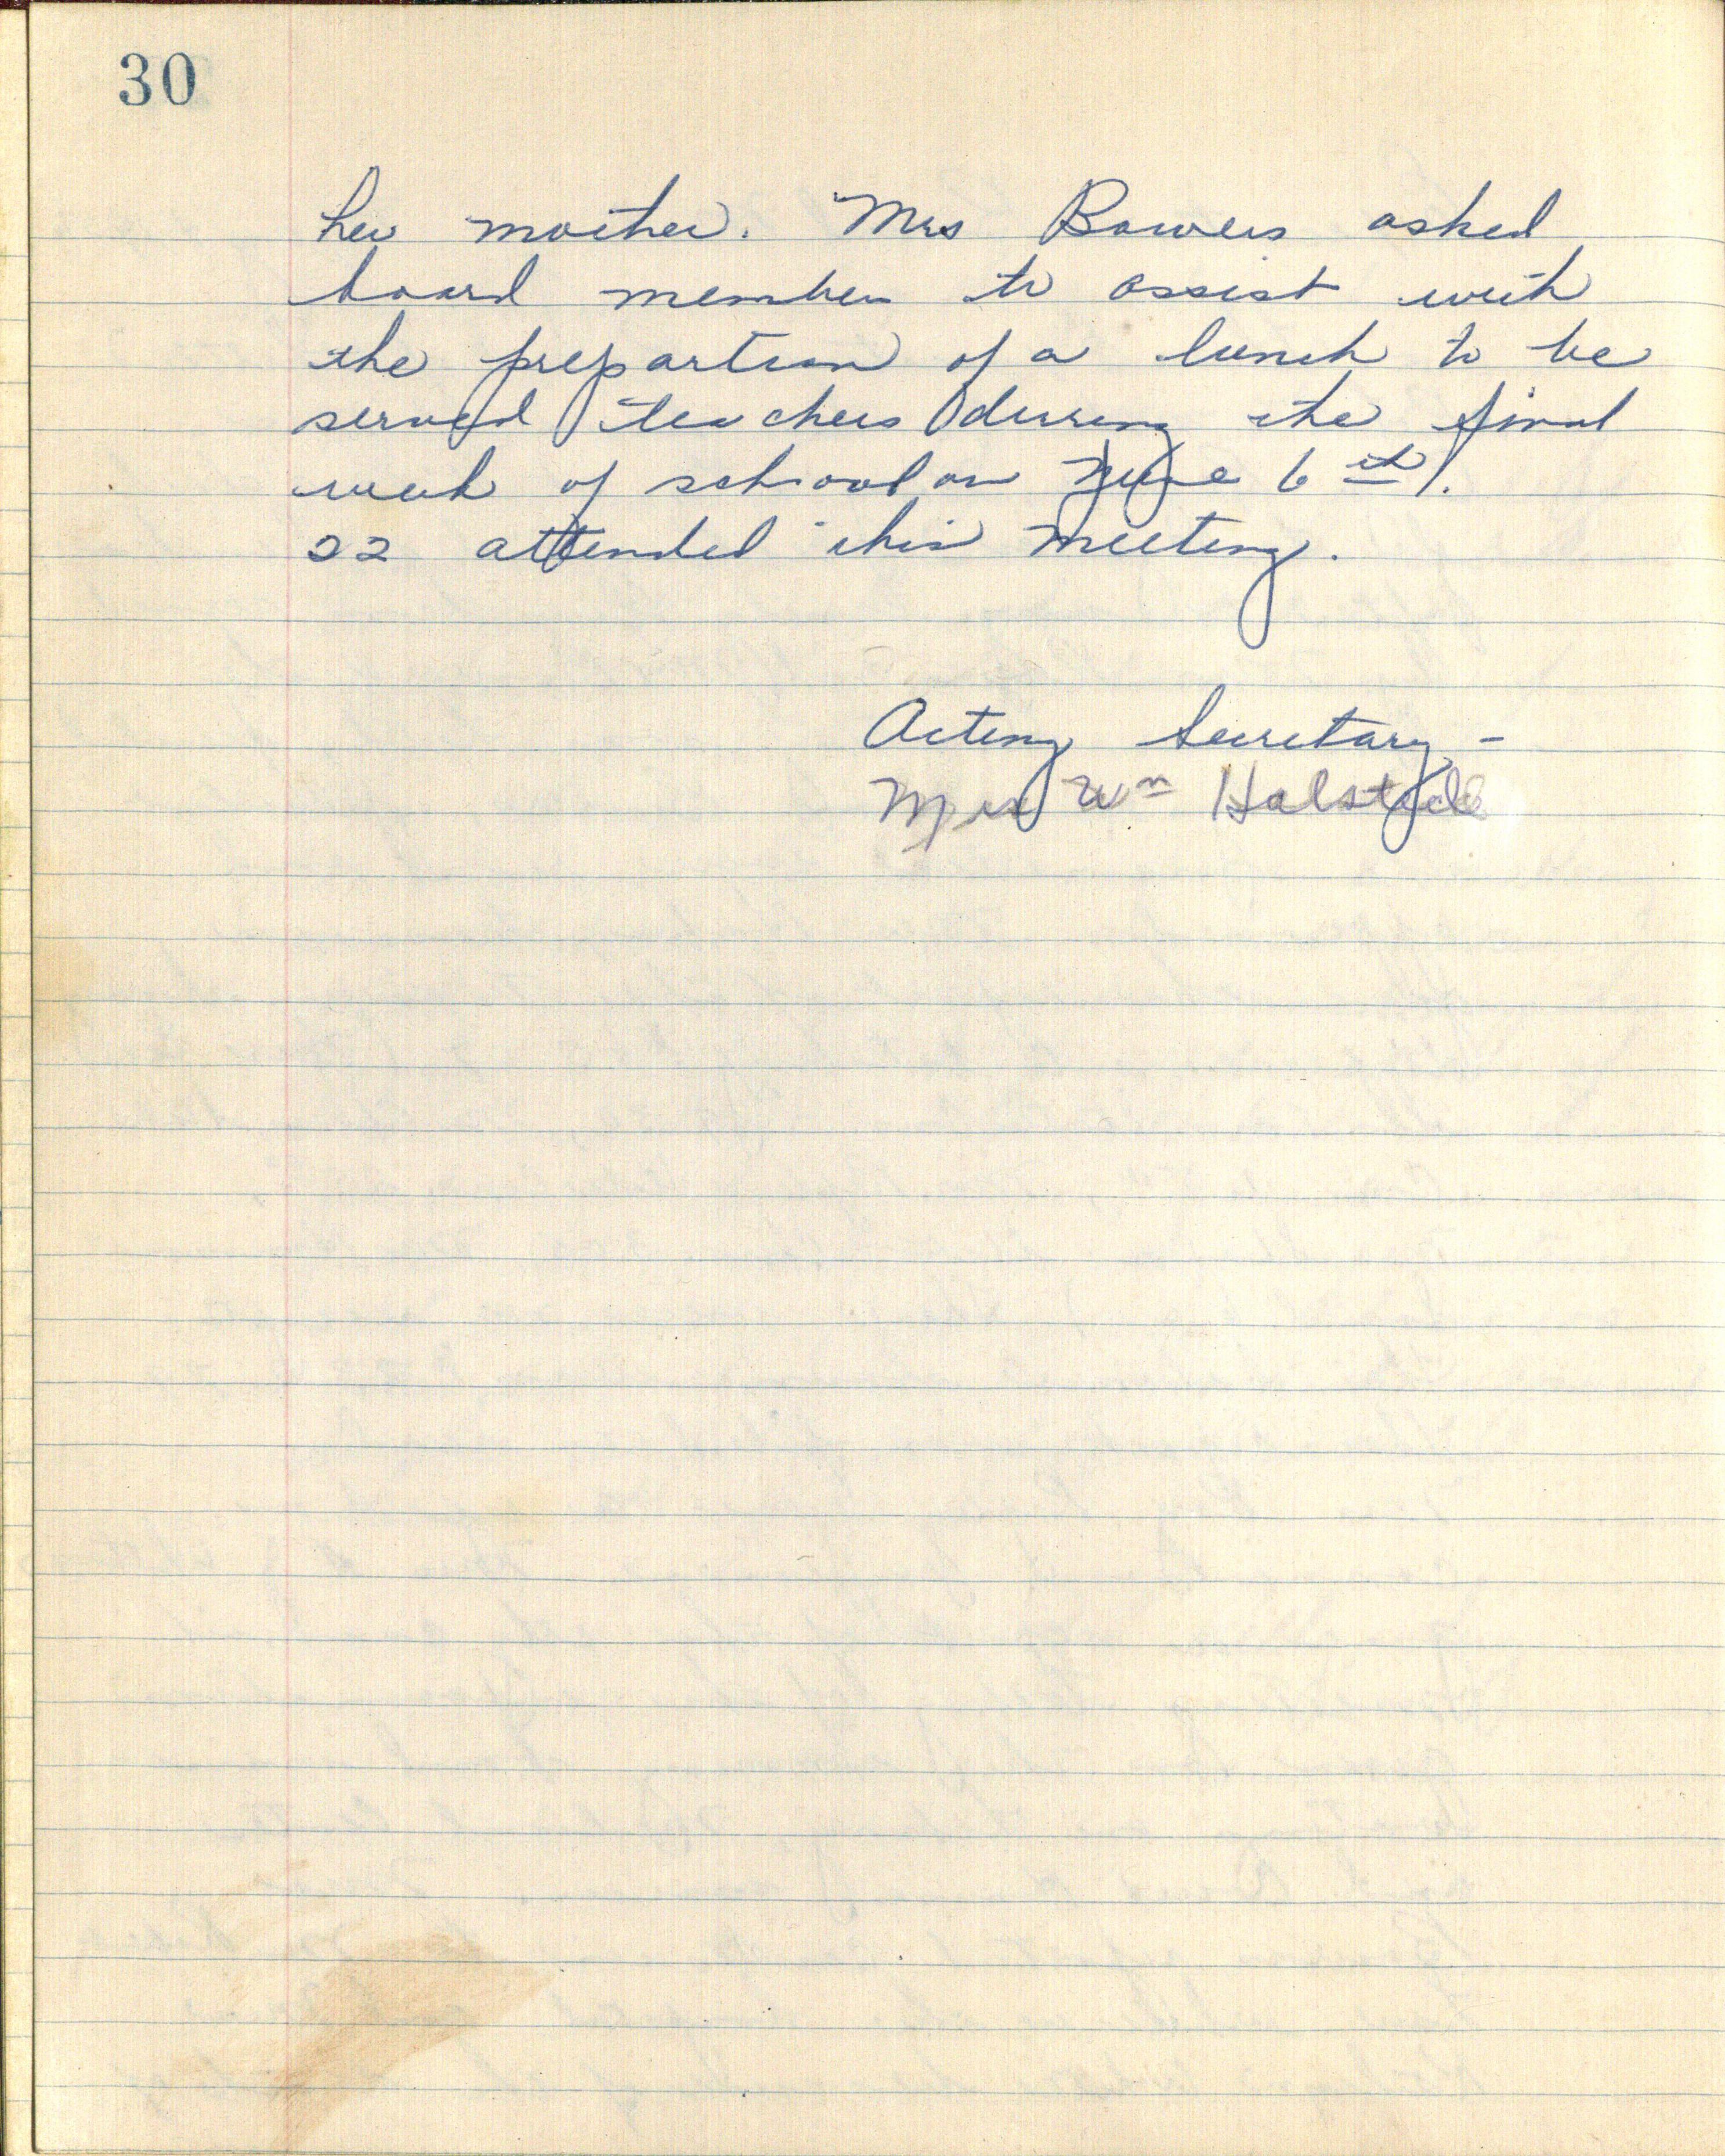 30
her mother. Mrs Bowers asked
board members to assist with
the prepartion of a lunch to be
served teachers during the final
week of school on June 6th.
22 attended this meeting.
Acting Secretary -
Mrs Wm Halstede